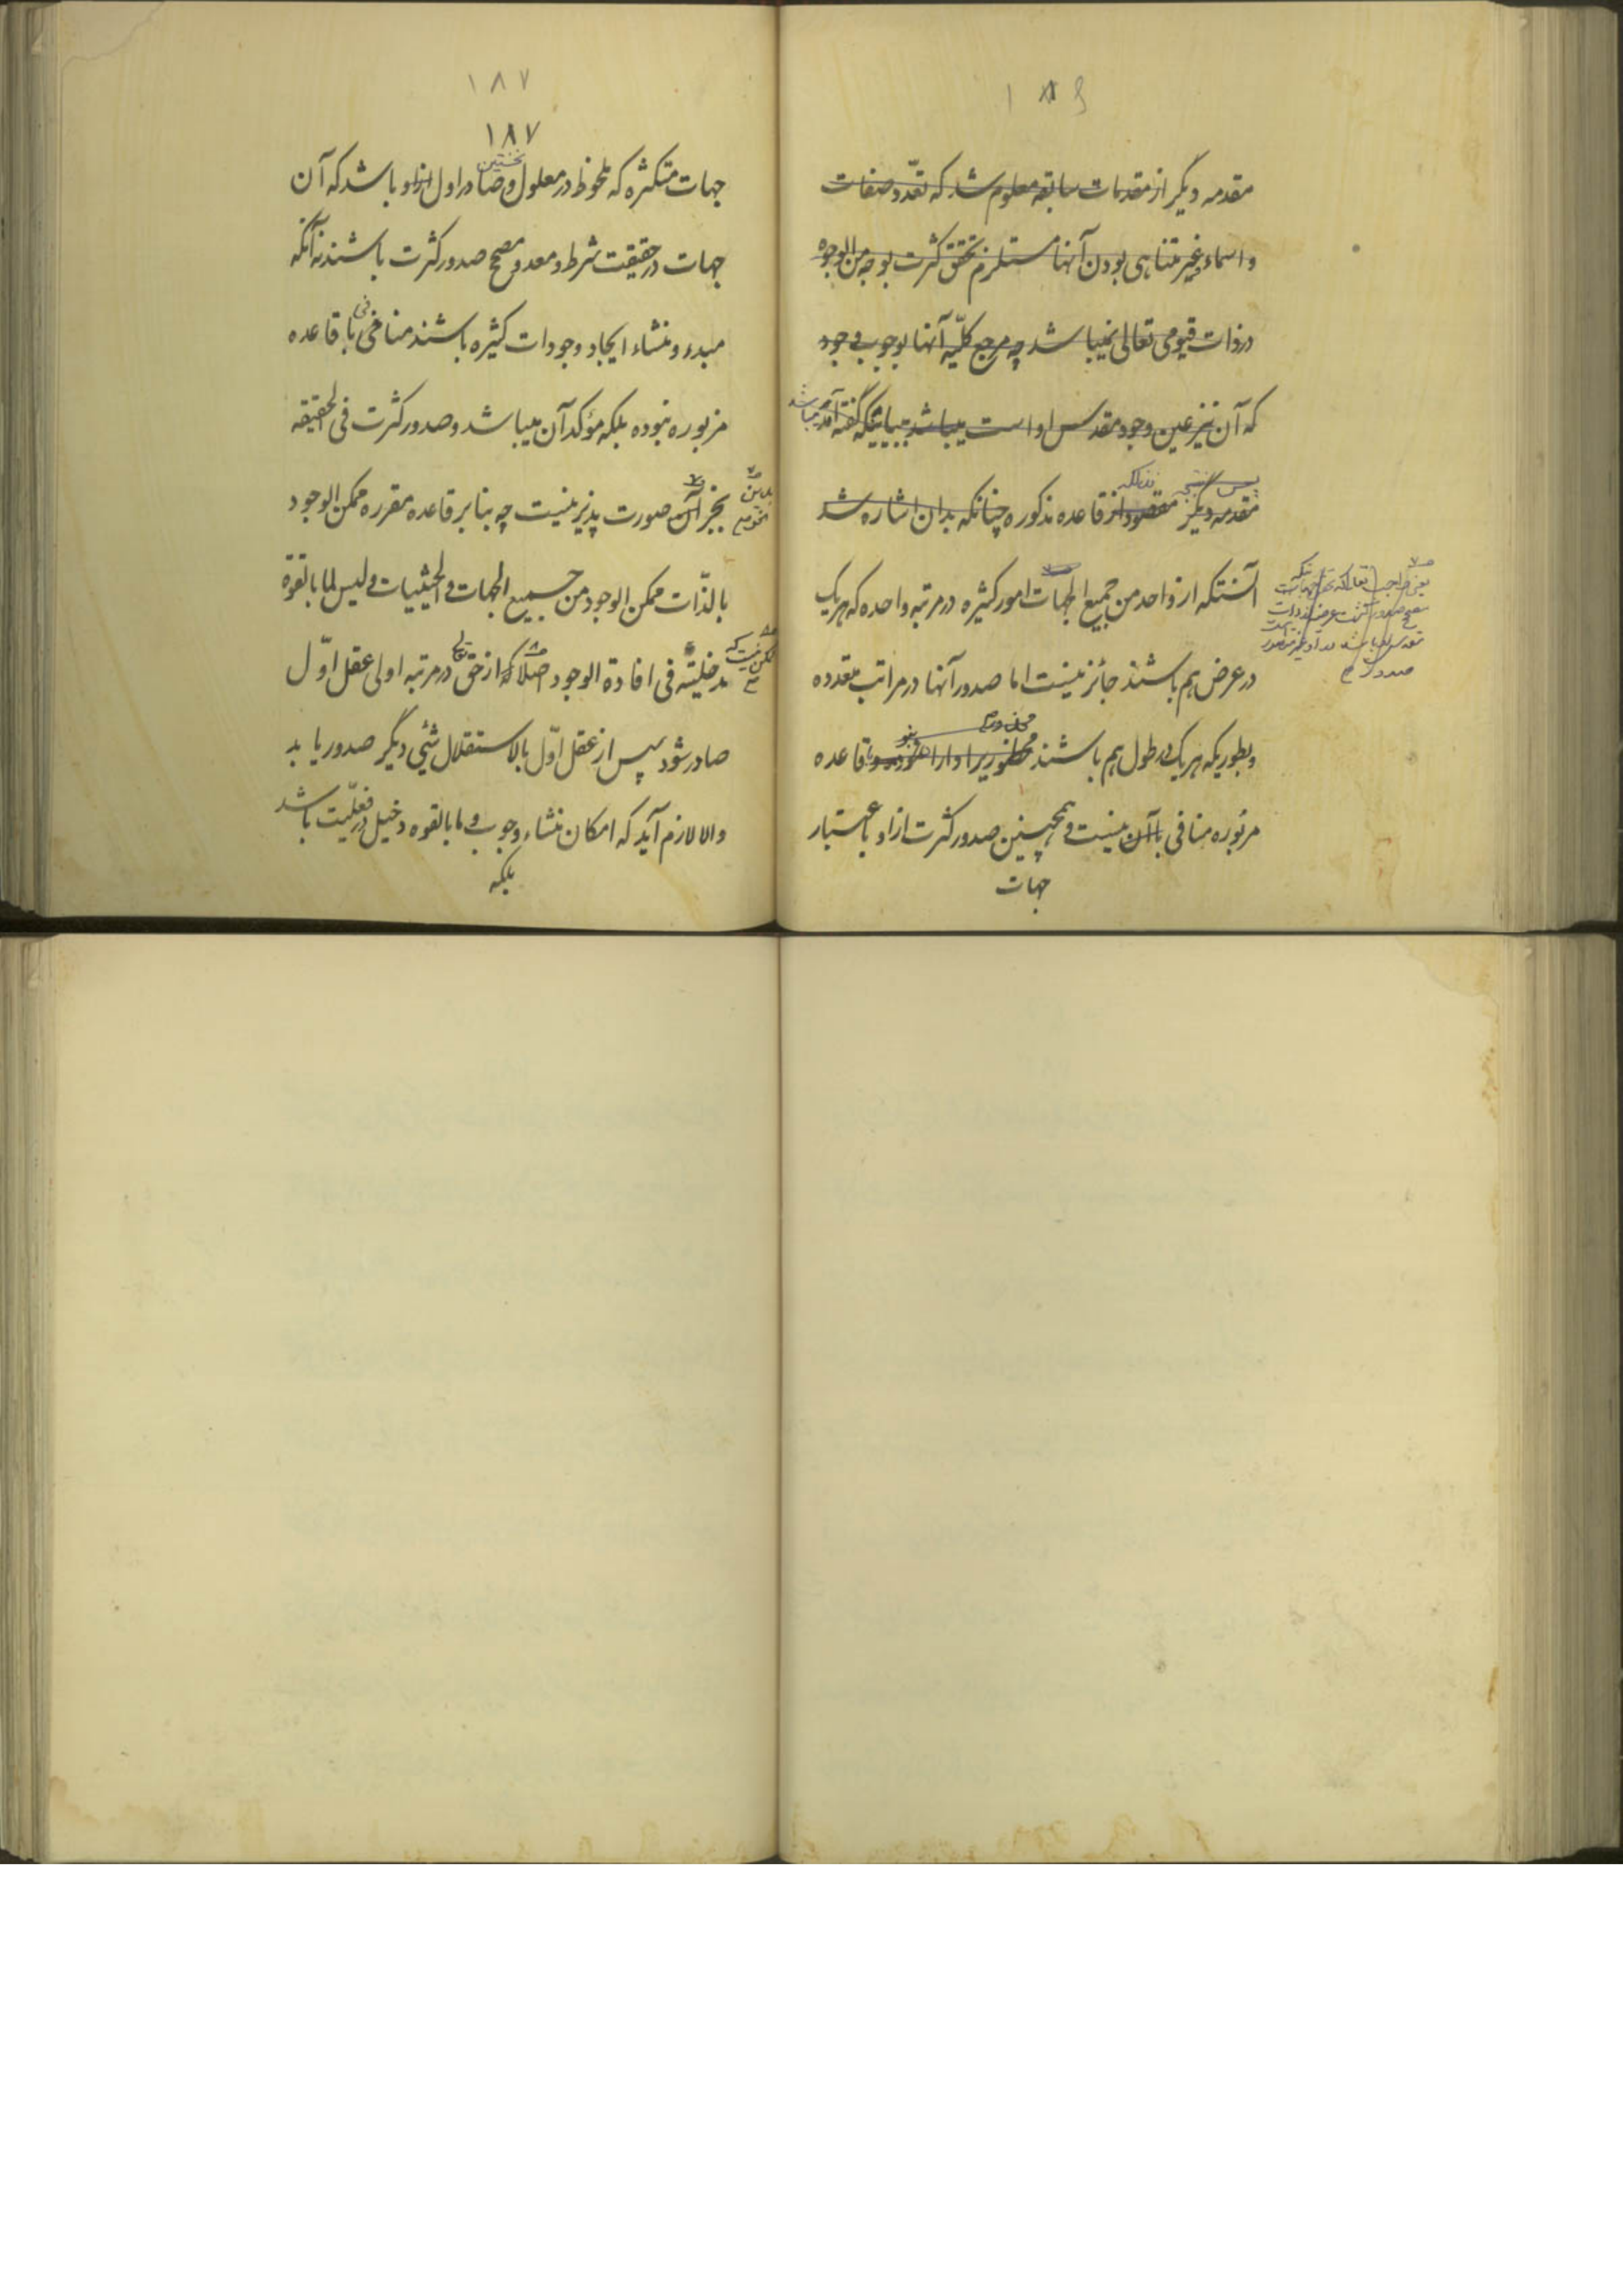 ۱۸۶
مقدمه دیگر از مقدمات سابقه معلوم شد که تعدّد صفات
و اسماء و غیر متناهی بودن آنها مستلزم تحقق کثرت بوجه من الوجوه
در ذات قیومی تعالی نمیباشد چه مرجع کلّیه آنها بوجوب وجود
که آن نیز عین وجود مقدس او است میباشد گفته آمد
پس نتیجه
مقدمه دیگر مقصود از قاعده مذکوره چنانکه بدان اشاره شد
آنستکه از واحد من جمیع الجهات امور کثیره در مرتبه واحده که هر یک
در عرض هم باشند جائز نیست اما صدور آنها در مراتب متعدده
و بطوریکه هر یک در طول هم باشند قاعده
مزبوره منافی با آن نیست و همچنین صدور کثرت از او باعتبار
جهات
۱۸۷
۱۸۷
نخستین
جهات متکثره که ملحوظ در معلول و صادر اول از او باشد که آن
جهات در حقیقت شرط و معد و مصحح صدور کثرت باشند نه آنکه
مبدء و منشاء ایجاد وجودات کثیره باشند منافی با قاعده
مزبوره نبوده بلکه مؤکد آن میباشد و صدور کثرت فی الحقیقه
بجز آن صورت پذیر نیست چه بنا بر قاعده مقرره ممکن الوجود
بالذّات ممکن الوجود من جمیع الجهات و الحیثیات و لیس لما بالقوة
مدخلیته فی افادة الوجود اصلا که از حق تع در مرتبه اولی عقل اوّل
صادر شود سپس از عقل اوّل بالاستقلال شیئی دیگر صدور یابد
و الا لازم آید که امکان منشاء وجوب و ما بالقوه دخیل در فعلیّت باشد
بلکه